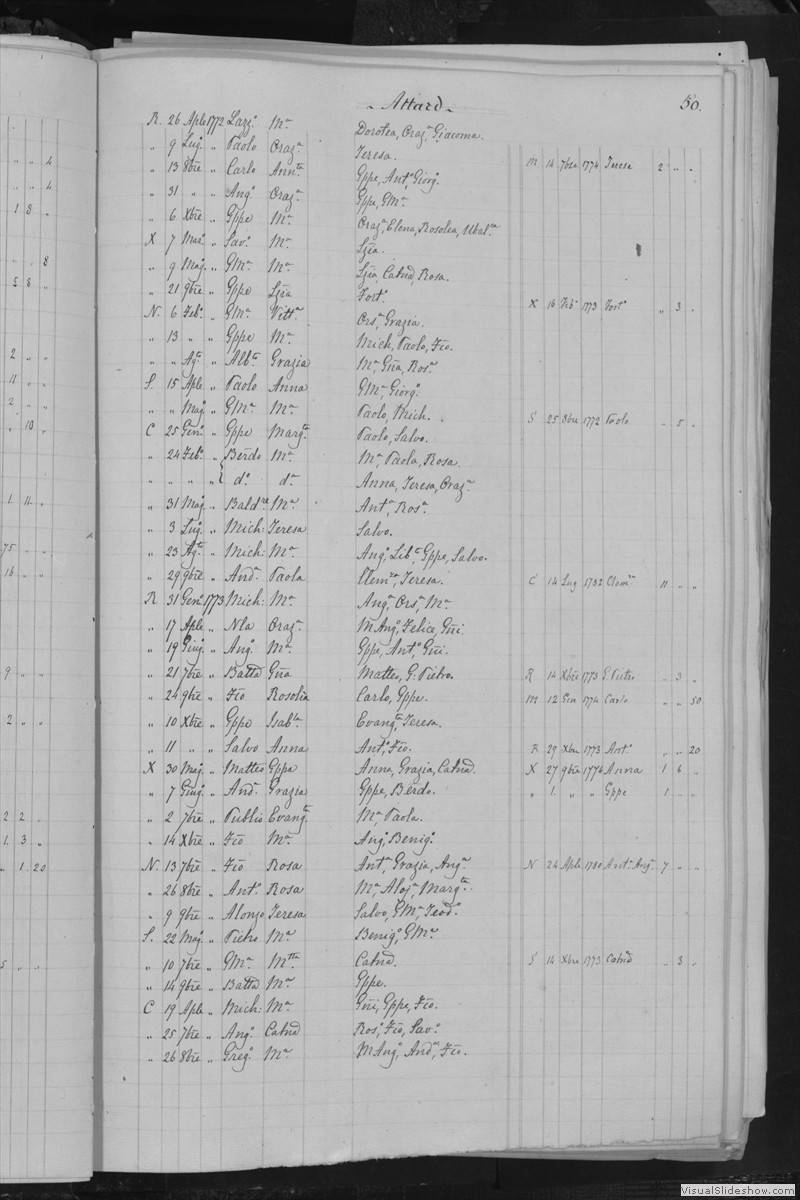 - Attard -
50.
R. 26 Aple 1772 Lazzo. Ma. Dorotea, Oraza. Giacoma.
" 9 Lugo. " Paolo Oraza. Teresa. M 14 7bre 1774 Teresa 2 " "
" 13 8bre " Carlo Annta. Gppe, Anto. Giorgo.
" 31 " " Ango. Oraza. Gppe, GMa.
" 6 Xbre " Gppe Ma. Oraza. Elena, Rosolea, Ubalca.
X 7 Maro. " Savo. Ma. Lzia.
" 9 Mago. " GMa. Ma. Lzia, Catnd, Rosa.
" 21 9bre " Gppe Lzia Forto. X 16 Febo. 1773 Forto. " 3 "
N. 6 Febo. " GMa. Vitta. Orsa. Grazia.
" 13 " " Gppe Ma. Mich, Paolo, Fco.
" " Agto. " Albto. Grazia Ma. Gna, Rosa.
S. 15 Aple " Paolo Anna GMa. Giorgo.
" " Mago. " GMa. Ma. Paolo, Mich. S 25 8bre 1772 Paolo " 5 "
C 25 Geno. " Gppe Margta. Paolo, Salvo.
" 24 Febo. " Berdo Ma. Ma. Paola, Rosa.
" " " " do. da. Anna, Teresa, Oraza.
" 31 Mago. " Baldre Ma. Anta. Rosa.
" 3 Lugo. " Mich: Teresa Salvo.
" 23 Agto. " Mich: Ma. Ango. Libto. Gppe, Salvo.
" 29 9bre " Anda. Paola Clemza. Teresa. C 14 Lug 1782 Clema. 11 " "
R 31 Geno. 1773 Mich: Ma. Anga. Orsa. Ma.
" 17 Aple " Nla Oraza. MAngo. Felice, Gni.
" 19 Giugo. " Ango. Ma. Gppe, Anto. Gni.
" 21 7bre " Batta Gna Matteo, G. Pietro. R 14 Xbre 1773 G. Pietro " 3 "
" 24 9bre " Fco Rosolia Carlo, Gppe. M 12 Gen 1774 Carlo " " 50
" 10 Xbre " Gppe Isabla. Evangta. Teresa.
" 11 " " Salvo Anna Anto. Fco. R 29 Xbre 1773 Anto. " " 20
X 30 Mago. " Matteo Gppa Anna, Grazia, Catnd. X 27 9bre 1774 Anna 1 6 "
" 7 Giugo. " And. Grazia Gppe, Berdo. " 1. " " Gppe 1 " "
" 2 7bre " Publio Evangta. Ma. Paola.
" 14 Xbre " Fco Ma. Ango. Benigo.
N. 13 7bre " Fco Rosa Anta. Grazia, Anga. N 24 Aple 1780 Anta. Anga. 7 " "
" 26 8bre " Anto. Rosa Ma. Aloja. Margta.
" 9 9bre " Alonzo Teresa Salvo, GMa. Teodo.
S. 22 Mago. " Pietro Ma. Benigo. GMa.
" 10 7bre " GMa. Mtta. Catnd. S 14 Xbre 1773 Catnd " 3 "
" 14 9bre " Batta Ma. Gppe.
C 19 Aple " Mich: Ma. Gni, Gppe, Fco.
" 25 7bre " Ango. Catnd Roso. Fco, Savo.
" 26 8bre " Grego. Ma. MAngo. Anda. Fco.
VisualSlideshow.com